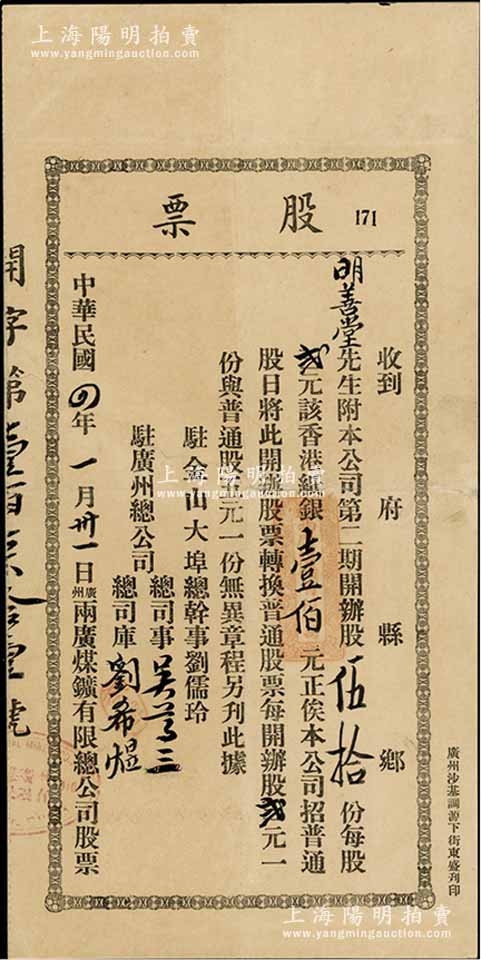 上海陽明拍賣
www.yangmingauction.com
股票
171
收到 府 縣 鄉
明善堂先生附本公司第二期開辦股伍拾份每股
弍元該香港紙銀壹佰元正俟本公司招普通
股日將此開辦股票轉換普通股票每開辦股弍元一
份與普通股五元一份無異章程另刋此據
駐金山大埠總幹事劉儒玲
駐廣州總公司
總司事吳
總司庫劉希煜
中華民國四年一月卅一日廣州兩廣煤鑛有限總公司股票
開字第壹百柒拾壹號
廣州沙基調源下街東盛刋印
上海陽明拍賣
www.yangmingauction.com
上海陽明拍賣
www.yangmingauction.com